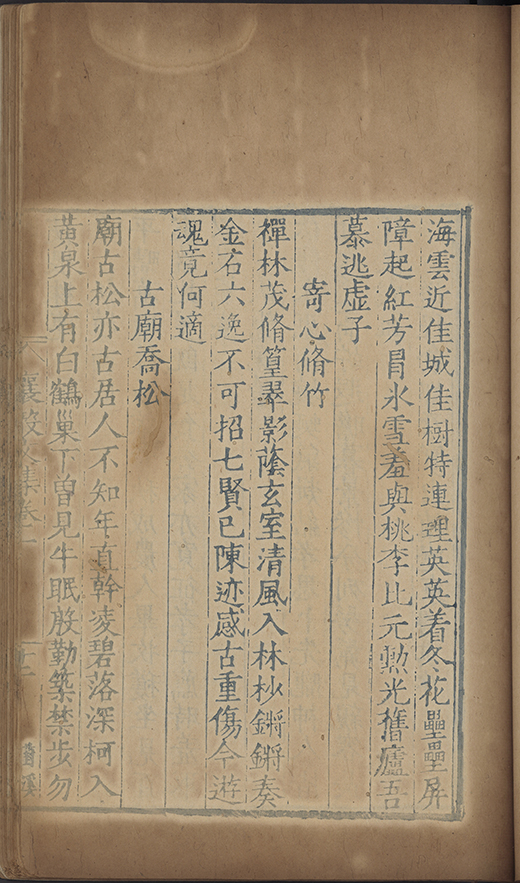 海雲近佳城佳樹特連理英英着冬花壘壘屏
障起紅芳冐氷雪羞與桃李比元勲光舊廬吾
慕逃虛子
寄心脩竹
禪林茂脩篁翠影蔭玄室清風入林杪鏘鏘奏
金石六逸不可招七賢已陳迹感古重傷今遊
魂竟何適
古廟喬松
廟古松亦古居人不知年直幹凌碧落深柯入
黃泉上有白鶴巢下曾見牛眠殷勤築禁步勿
襄毅文集卷一